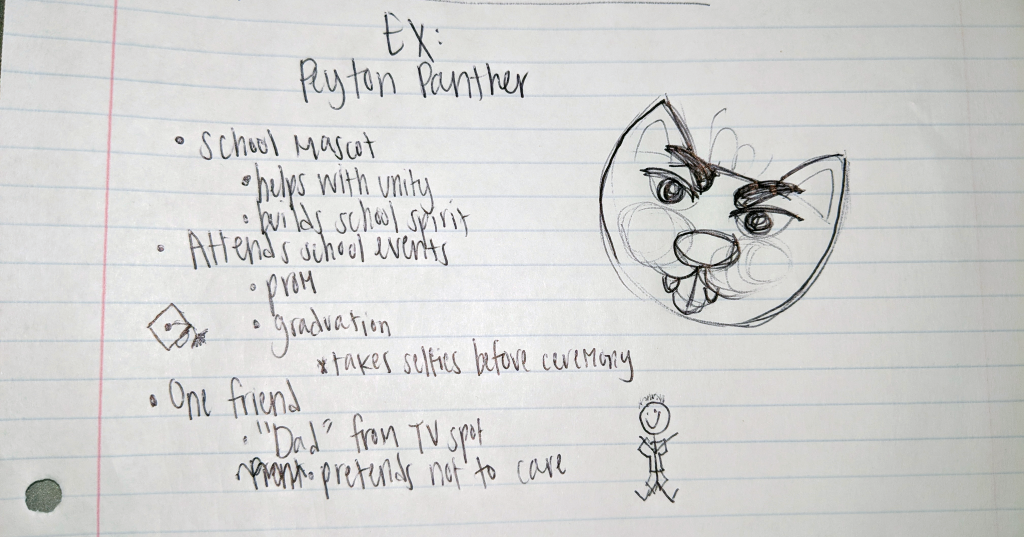 EX:
Peyton Panther
• School Mascot
• helps with unity
• builds school spirit
• Attends school events
• prom
• graduation
*takes selfies before ceremony
• One friend
• "Dad" from TV spot
• pretends not to care